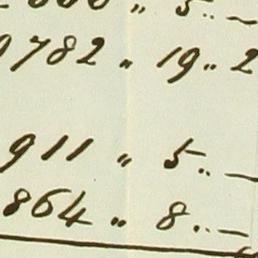 000 " 5 .. —
9782 " 19 .. 2
911 " 5 .. —
864 " 8 .. —